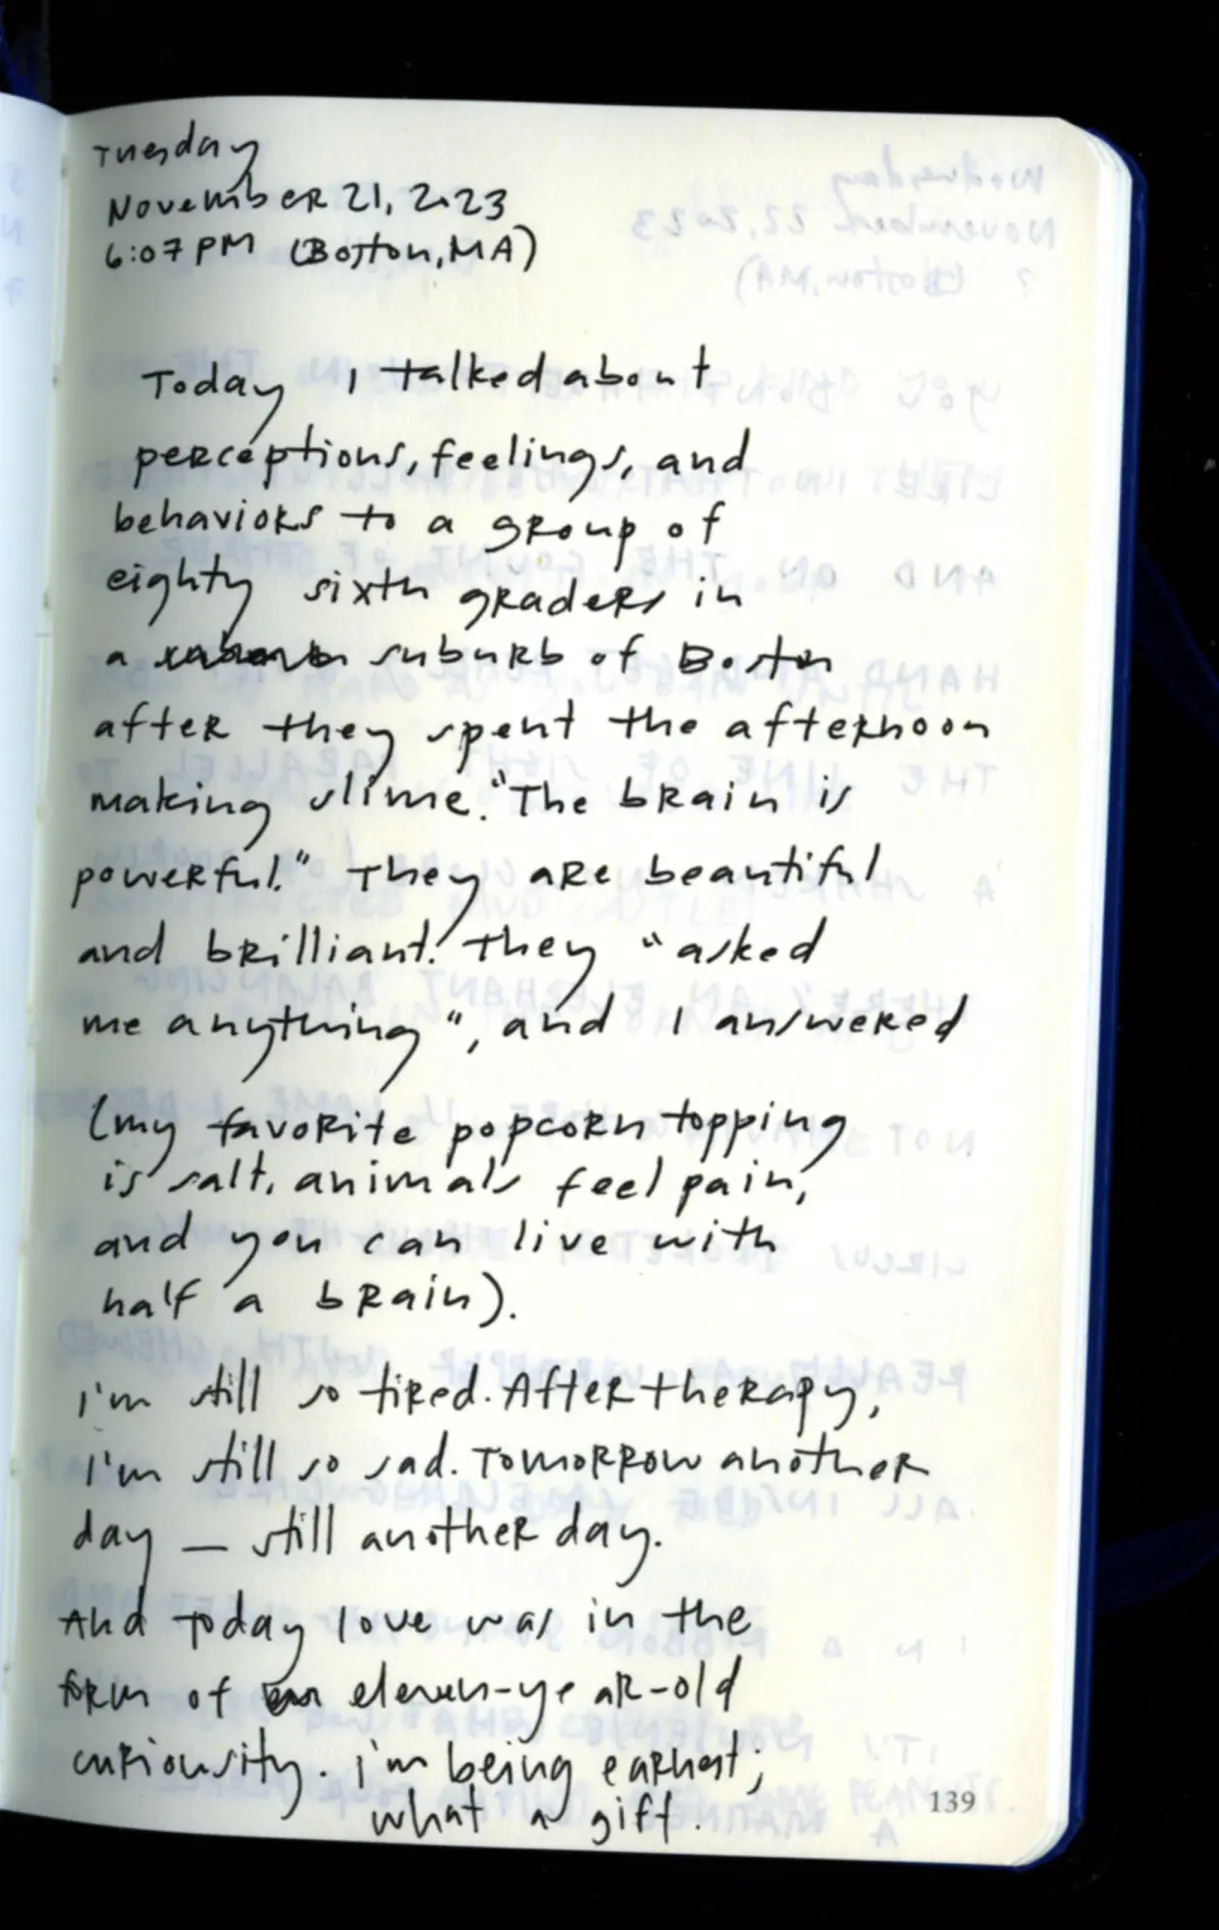 Tuesday
November 21, 2023
6:07 PM (Boston, MA)
Today I talked about
perceptions, feelings, and
behaviors to a group of
eighty sixth graders in
a suburb of Boston
after they spent the afternoon
making slime. "The brain is
powerful." They are beautiful
and brilliant. They "asked
me anything", and I answered
(my favorite popcorn topping
is salt, animals feel pain,
and you can live with
half a brain).
I'm still so tired. After therapy,
I'm still so sad. Tomorrow another
day — still another day.
And today love was in the
form of eleven-year-old
curiousity. I'm being earnest;
what a gift.
139